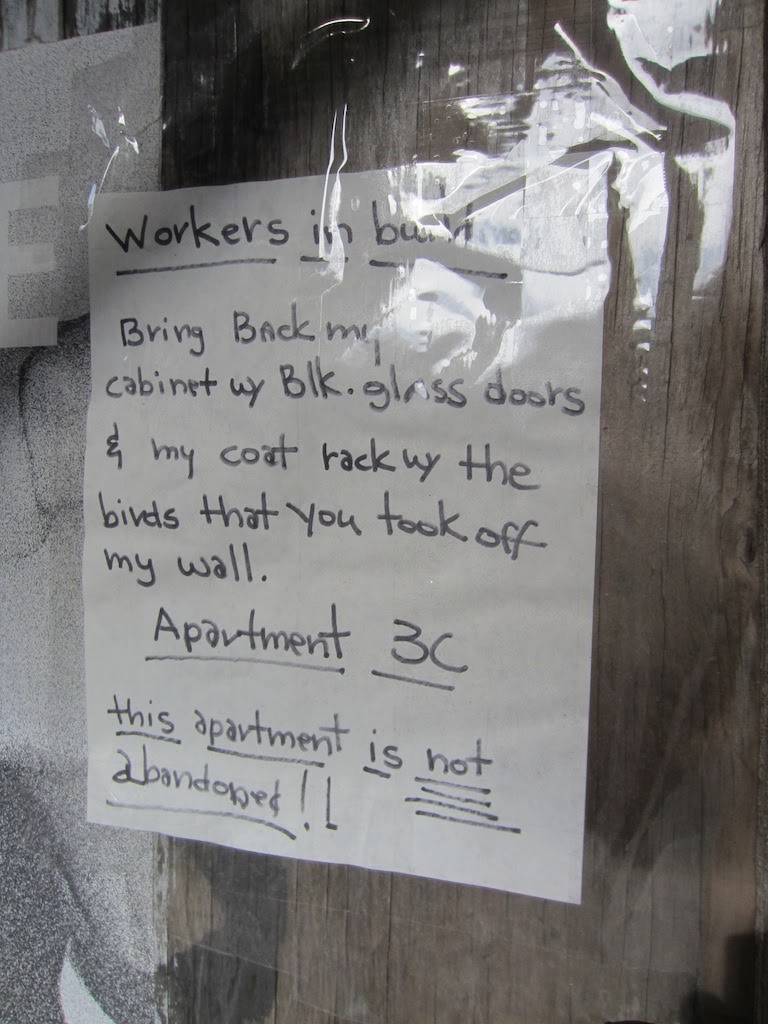 Workers in build
Bring Back my
cabinet w/ Blk. glass doors
& my coat rack w/ the
birds that you took off
my wall.
Apartment 3C
this apartment is not
abandoned!!
E